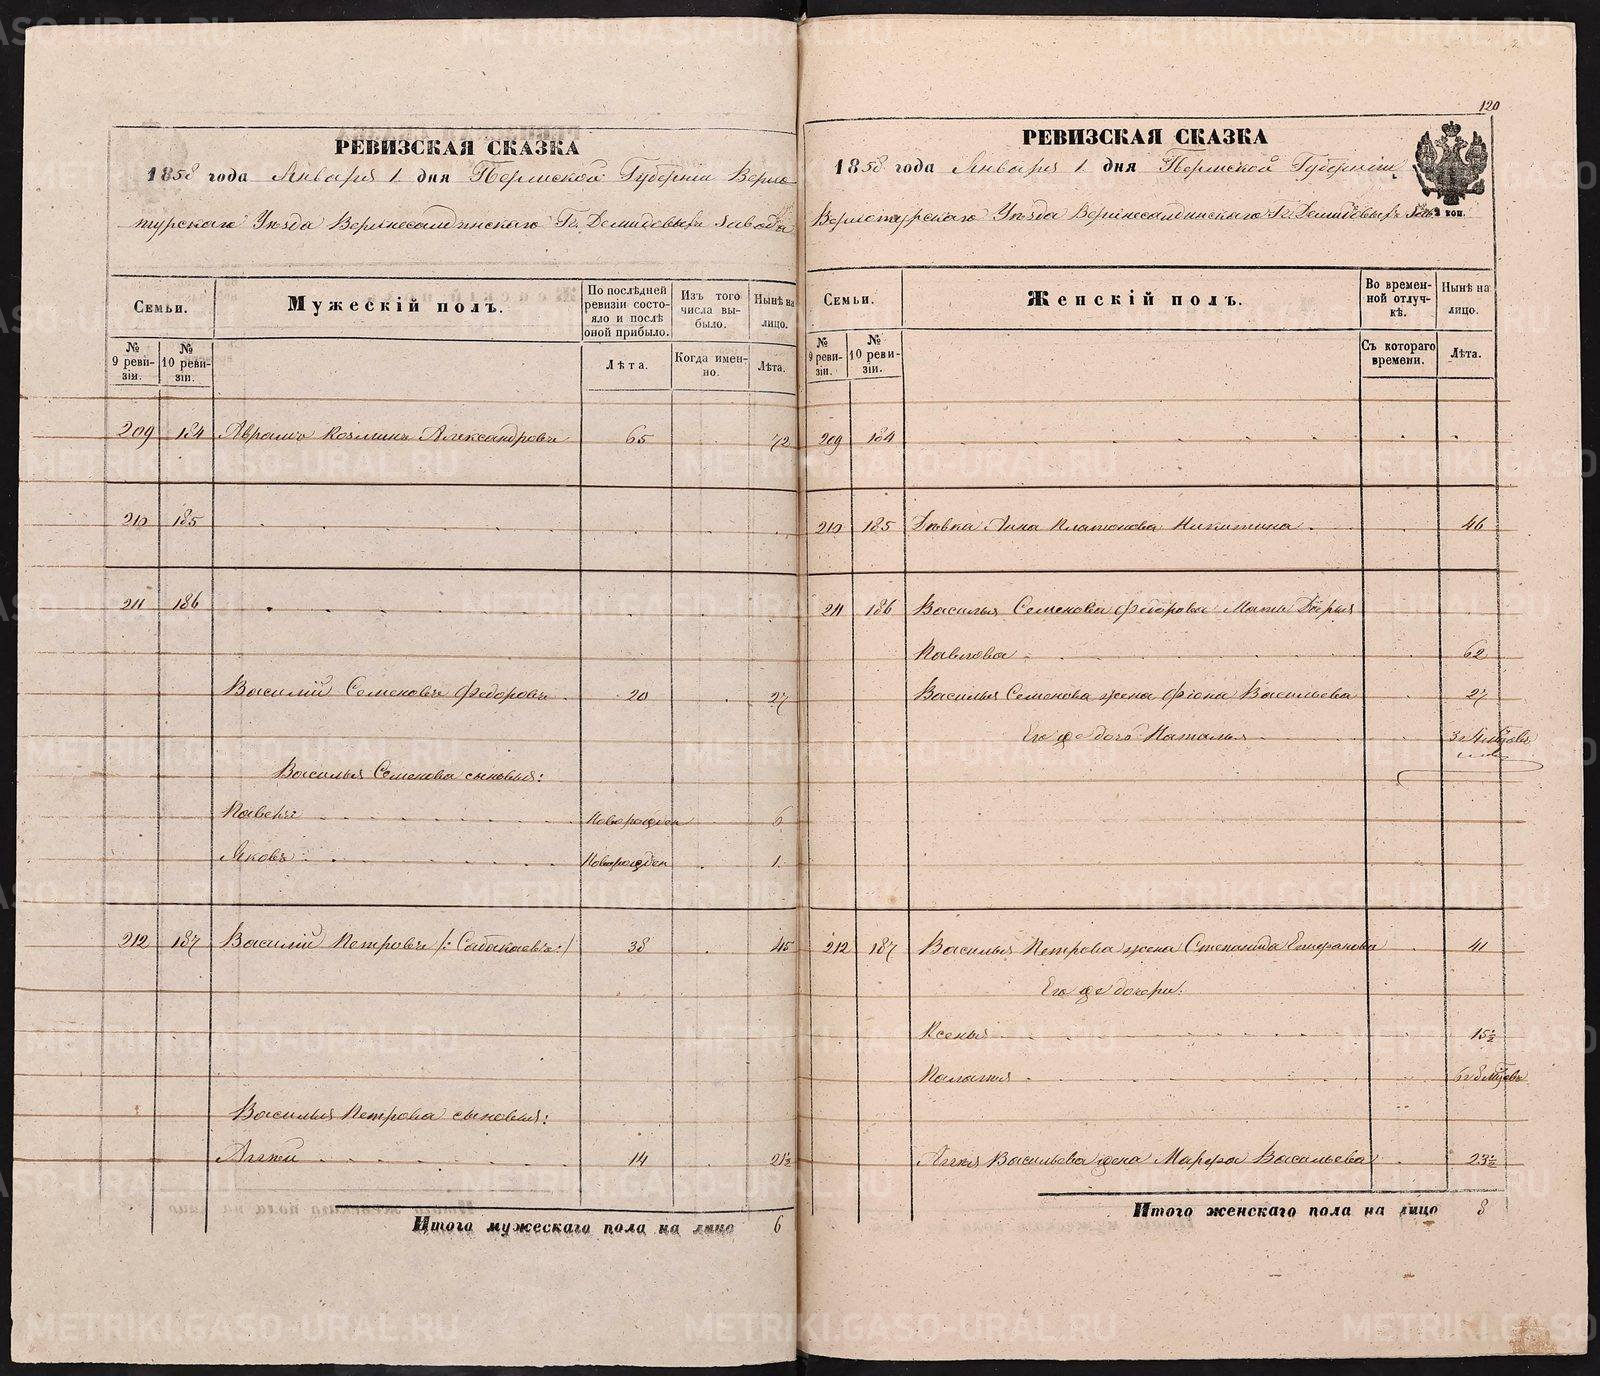 120
РЕВИЗСКАЯ СКАЗКА
1858 года Января 1 дня Пермской Губерніи Верхо-
турскаго Уѣзда Верхнесалдинскаго Гг. Демидовыхъ завода
Семьи.
Мужескій полъ.
По послѣдней ревизіи состо-
яло и послѣ оной прибыло.
Изъ того числа вы-
было.
Нынѣ на лицо.
№ 9 реви-
зіи.
№ 10 реви-
зіи.
Лѣта.
Когда имен-
но.
Лѣта.
209 184 Козминъ Александровъ 65 72
210 185
211 186
Василій Семеновъ Федоровъ 20 27
Василья Семенова сыновья:
Павелъ Новорожден 6
Яковъ Новорожден 1
212 187 Василій Петровъ /: :/ 38 45
Василья Петрова сыновья:
14 21½
Итого мужескаго пола на лицо 6
РЕВИЗСКАЯ СКАЗКА
1858 года Января 1 дня Пермской Губерніи
Верхотурскаго Уѣзда Верхнесалдинскаго Гг. Демидовыхъ зав.
2 коп.
Семьи.
Женскій полъ.
Во времен-
ной отлуч-
кѣ.
Нынѣ на лицо.
№ 9 реви-
зіи.
№ 10 реви-
зіи.
Съ котораго времени.
Лѣта.
209 184
210 185 Дѣвка Анна Платонова Никитина 46
211 186 Василья Семенова Федорова Мать Дарья
Павлова 62
Василья Семенова жена Васильева 27
Его же дочь Наталья 3
212 187 Василья Петрова жена Степанида 41
Его же дочери:
Ксенья 15½
Палагея 6 8 мѣсяцовъ
Васильева жена Марфа Васильева 23½
Итого женскаго пола на лицо 8
METRIKI.GASO-URAL.RU